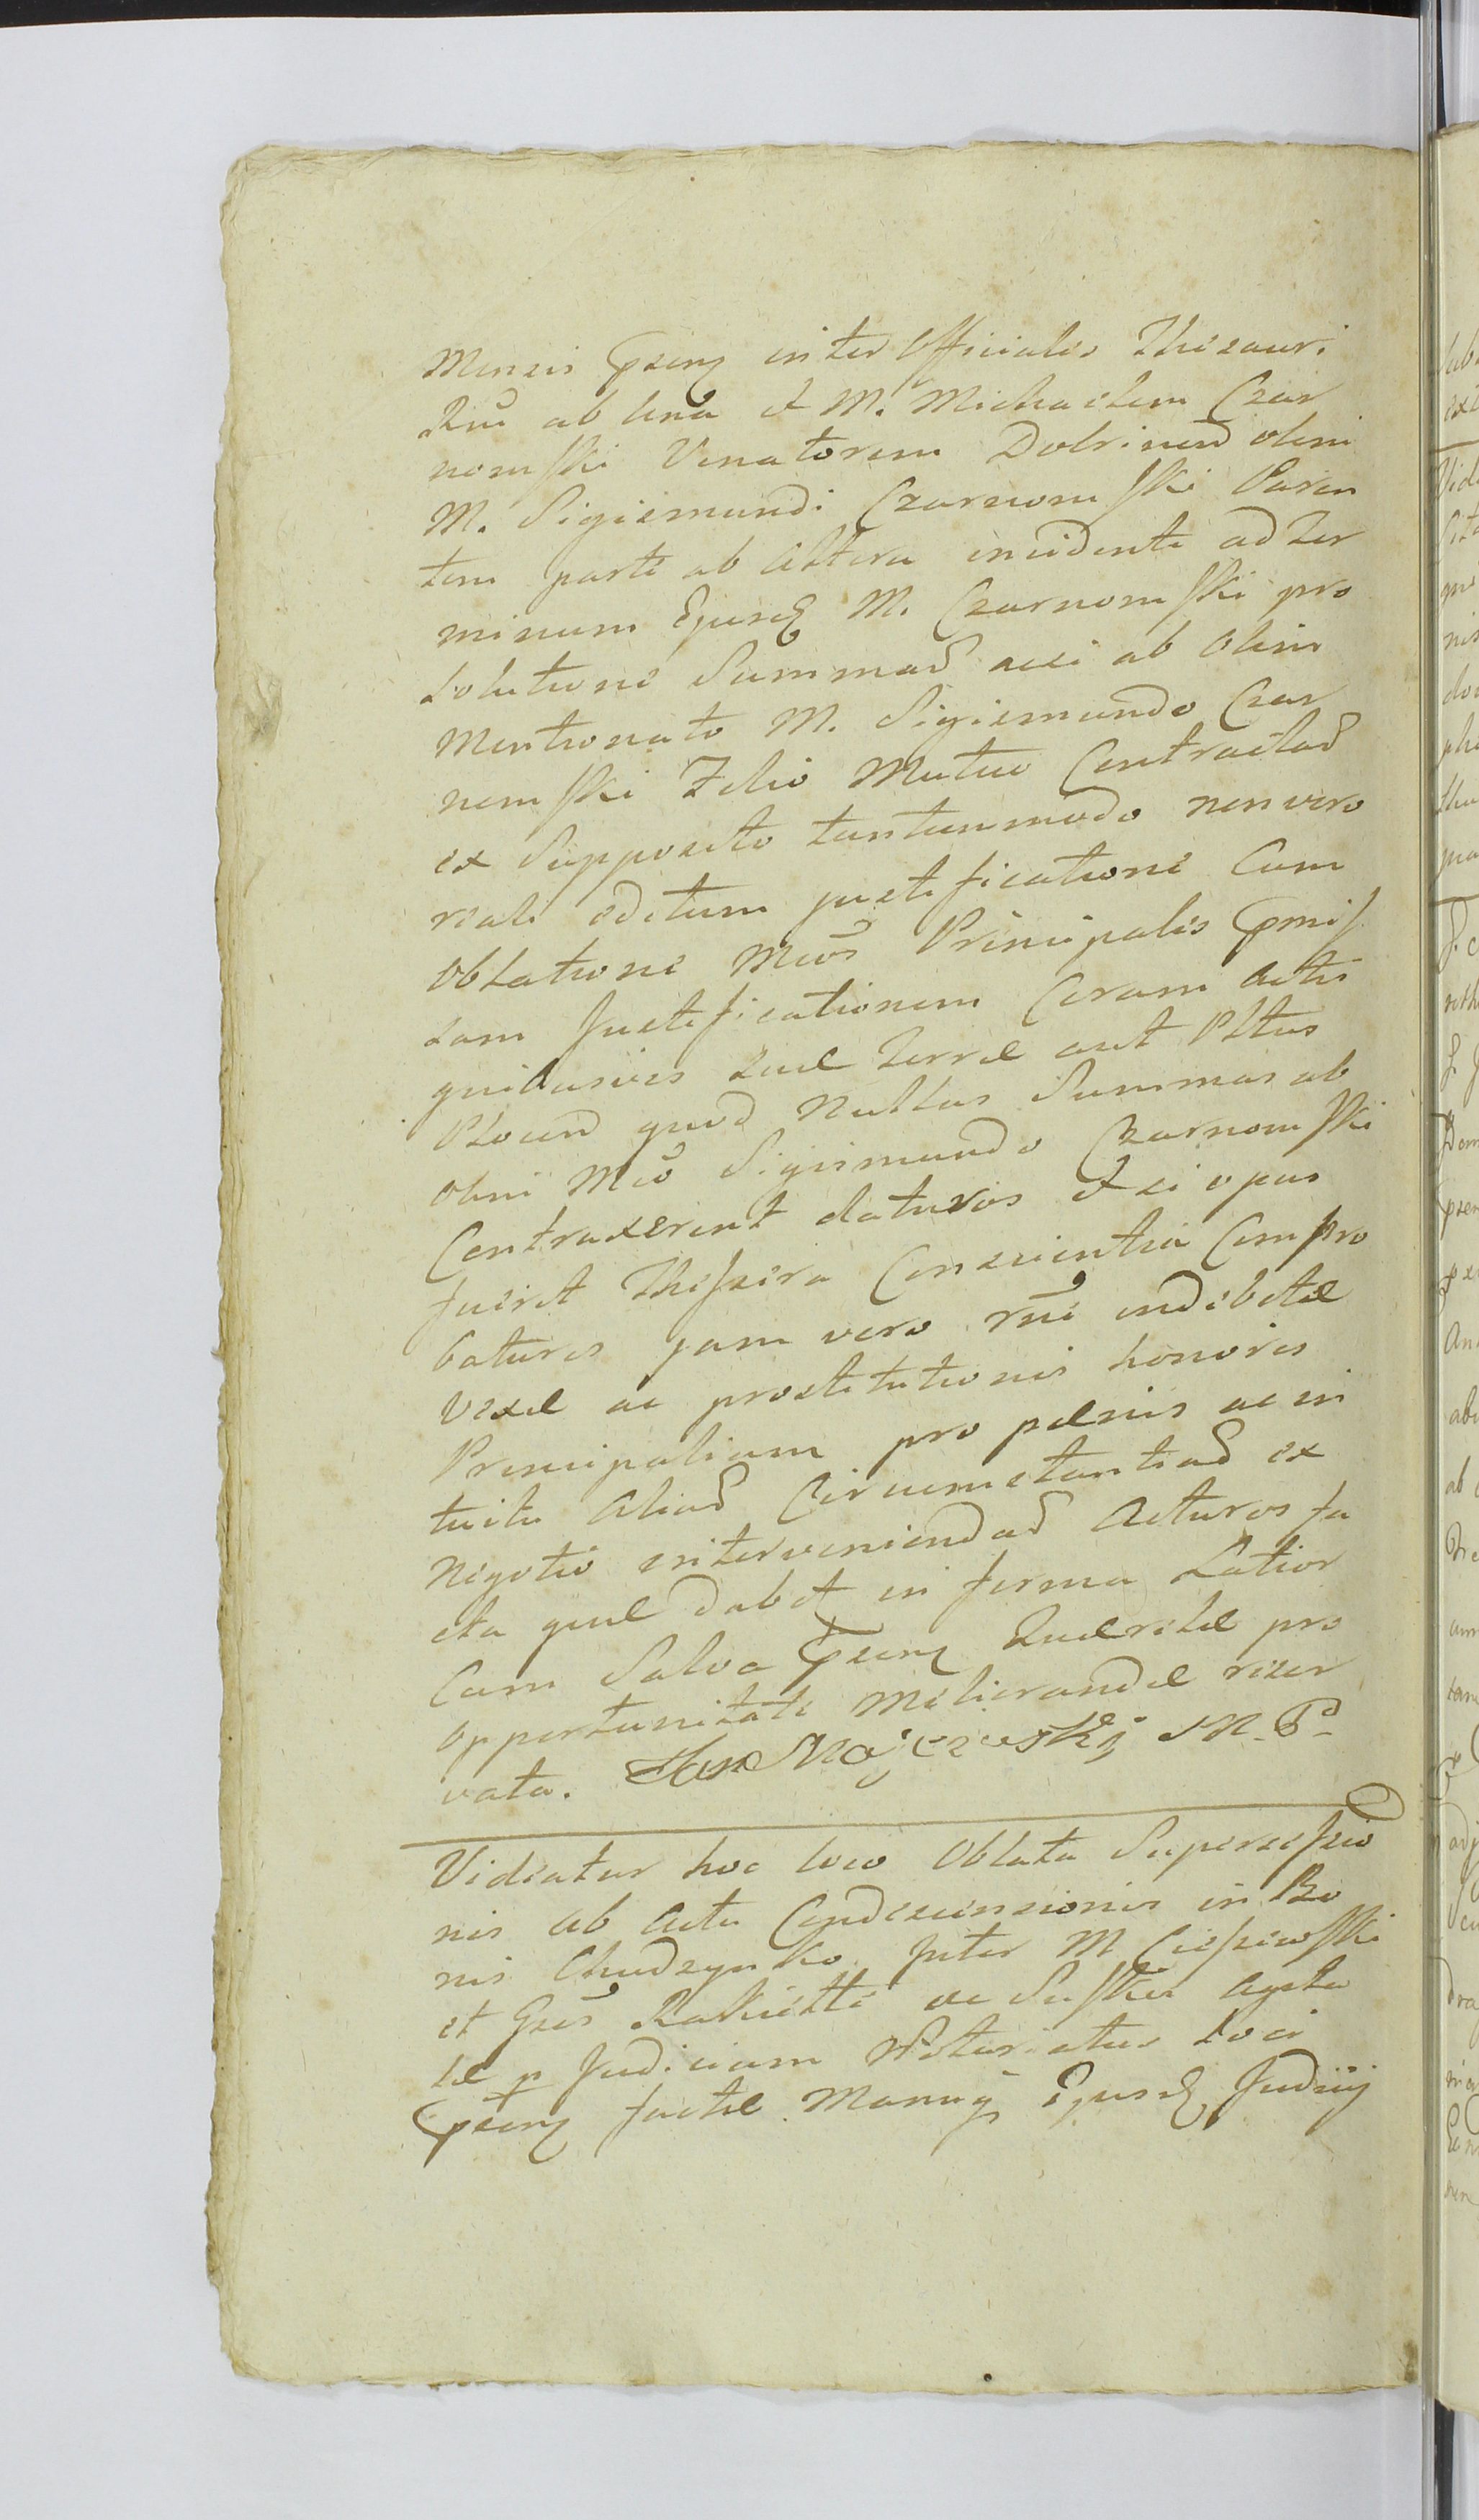 Mensis Psent inter Officiales Thesauri
Rni ab una et M. Michaelem Czar
nomski Venatorem Dobrinen olim
M. Sigismundi Czarnomski Paren
tem parte ab altera incidente ad Ter
minum Ejusd M. Czarnomski pro
solutione Summar acsi ab olim
Mentionato M. Sigismundo Czar
nomski Filio Mutuo Contractar
ex Supposito tantummodo non vero
reali editum justificatione Cum
oblatione Mcos Principalis Pmis
sam Justificationem Coram Actis
quibusvis suae Terrae aut Pltus
Plocen quod Nullas Summas ab
olim Mco Sigismundo Czarnomski
Contraxerint daturos et si opus
fuerit Thessera Conscientia Compro
baturos jam vero rne indebitae
Vexae ac prostitutionis honoris
Principalium pro paenis ac in
tuitu aliar Circumstantiar ex
Negotio interveniendar Acturos fu
cta quae dabit in forma Latior
Cum Salva Psent Quaerelae pro
opportunitate Meliorandae reser
vata. Mojczewski M. P.
Videatur hoc loco Oblata Supersessio
nis ab Actu Condescensionis in Bo
nis Chudzynko Inter M Ciessewski
et Gsos Rakiette ac Suski Acta
tae p Judicium Notariatus Loci
Psent factae Manuq Ejusd Judicij